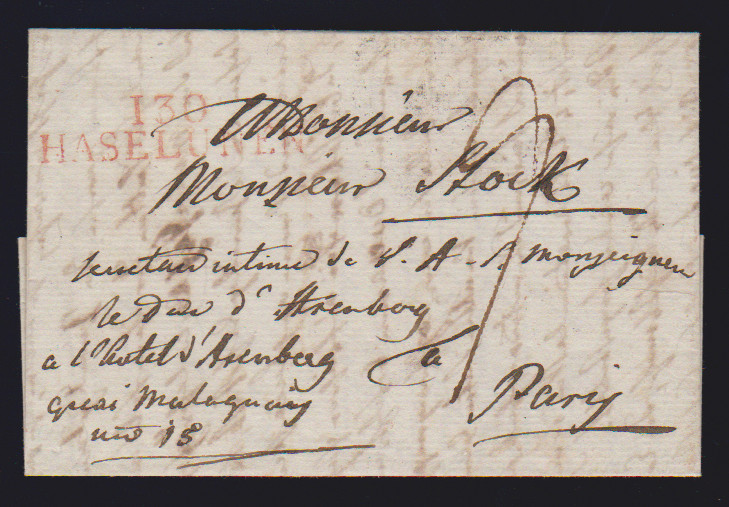 130
HASELUNEN
Monsieur
Monsieur Stock
secretaire intime de S. A. S. monseigneur
le duc d'Arenberg
a l'hotel d'Arenberg
a
quai Malaquais
Paris
nro 15